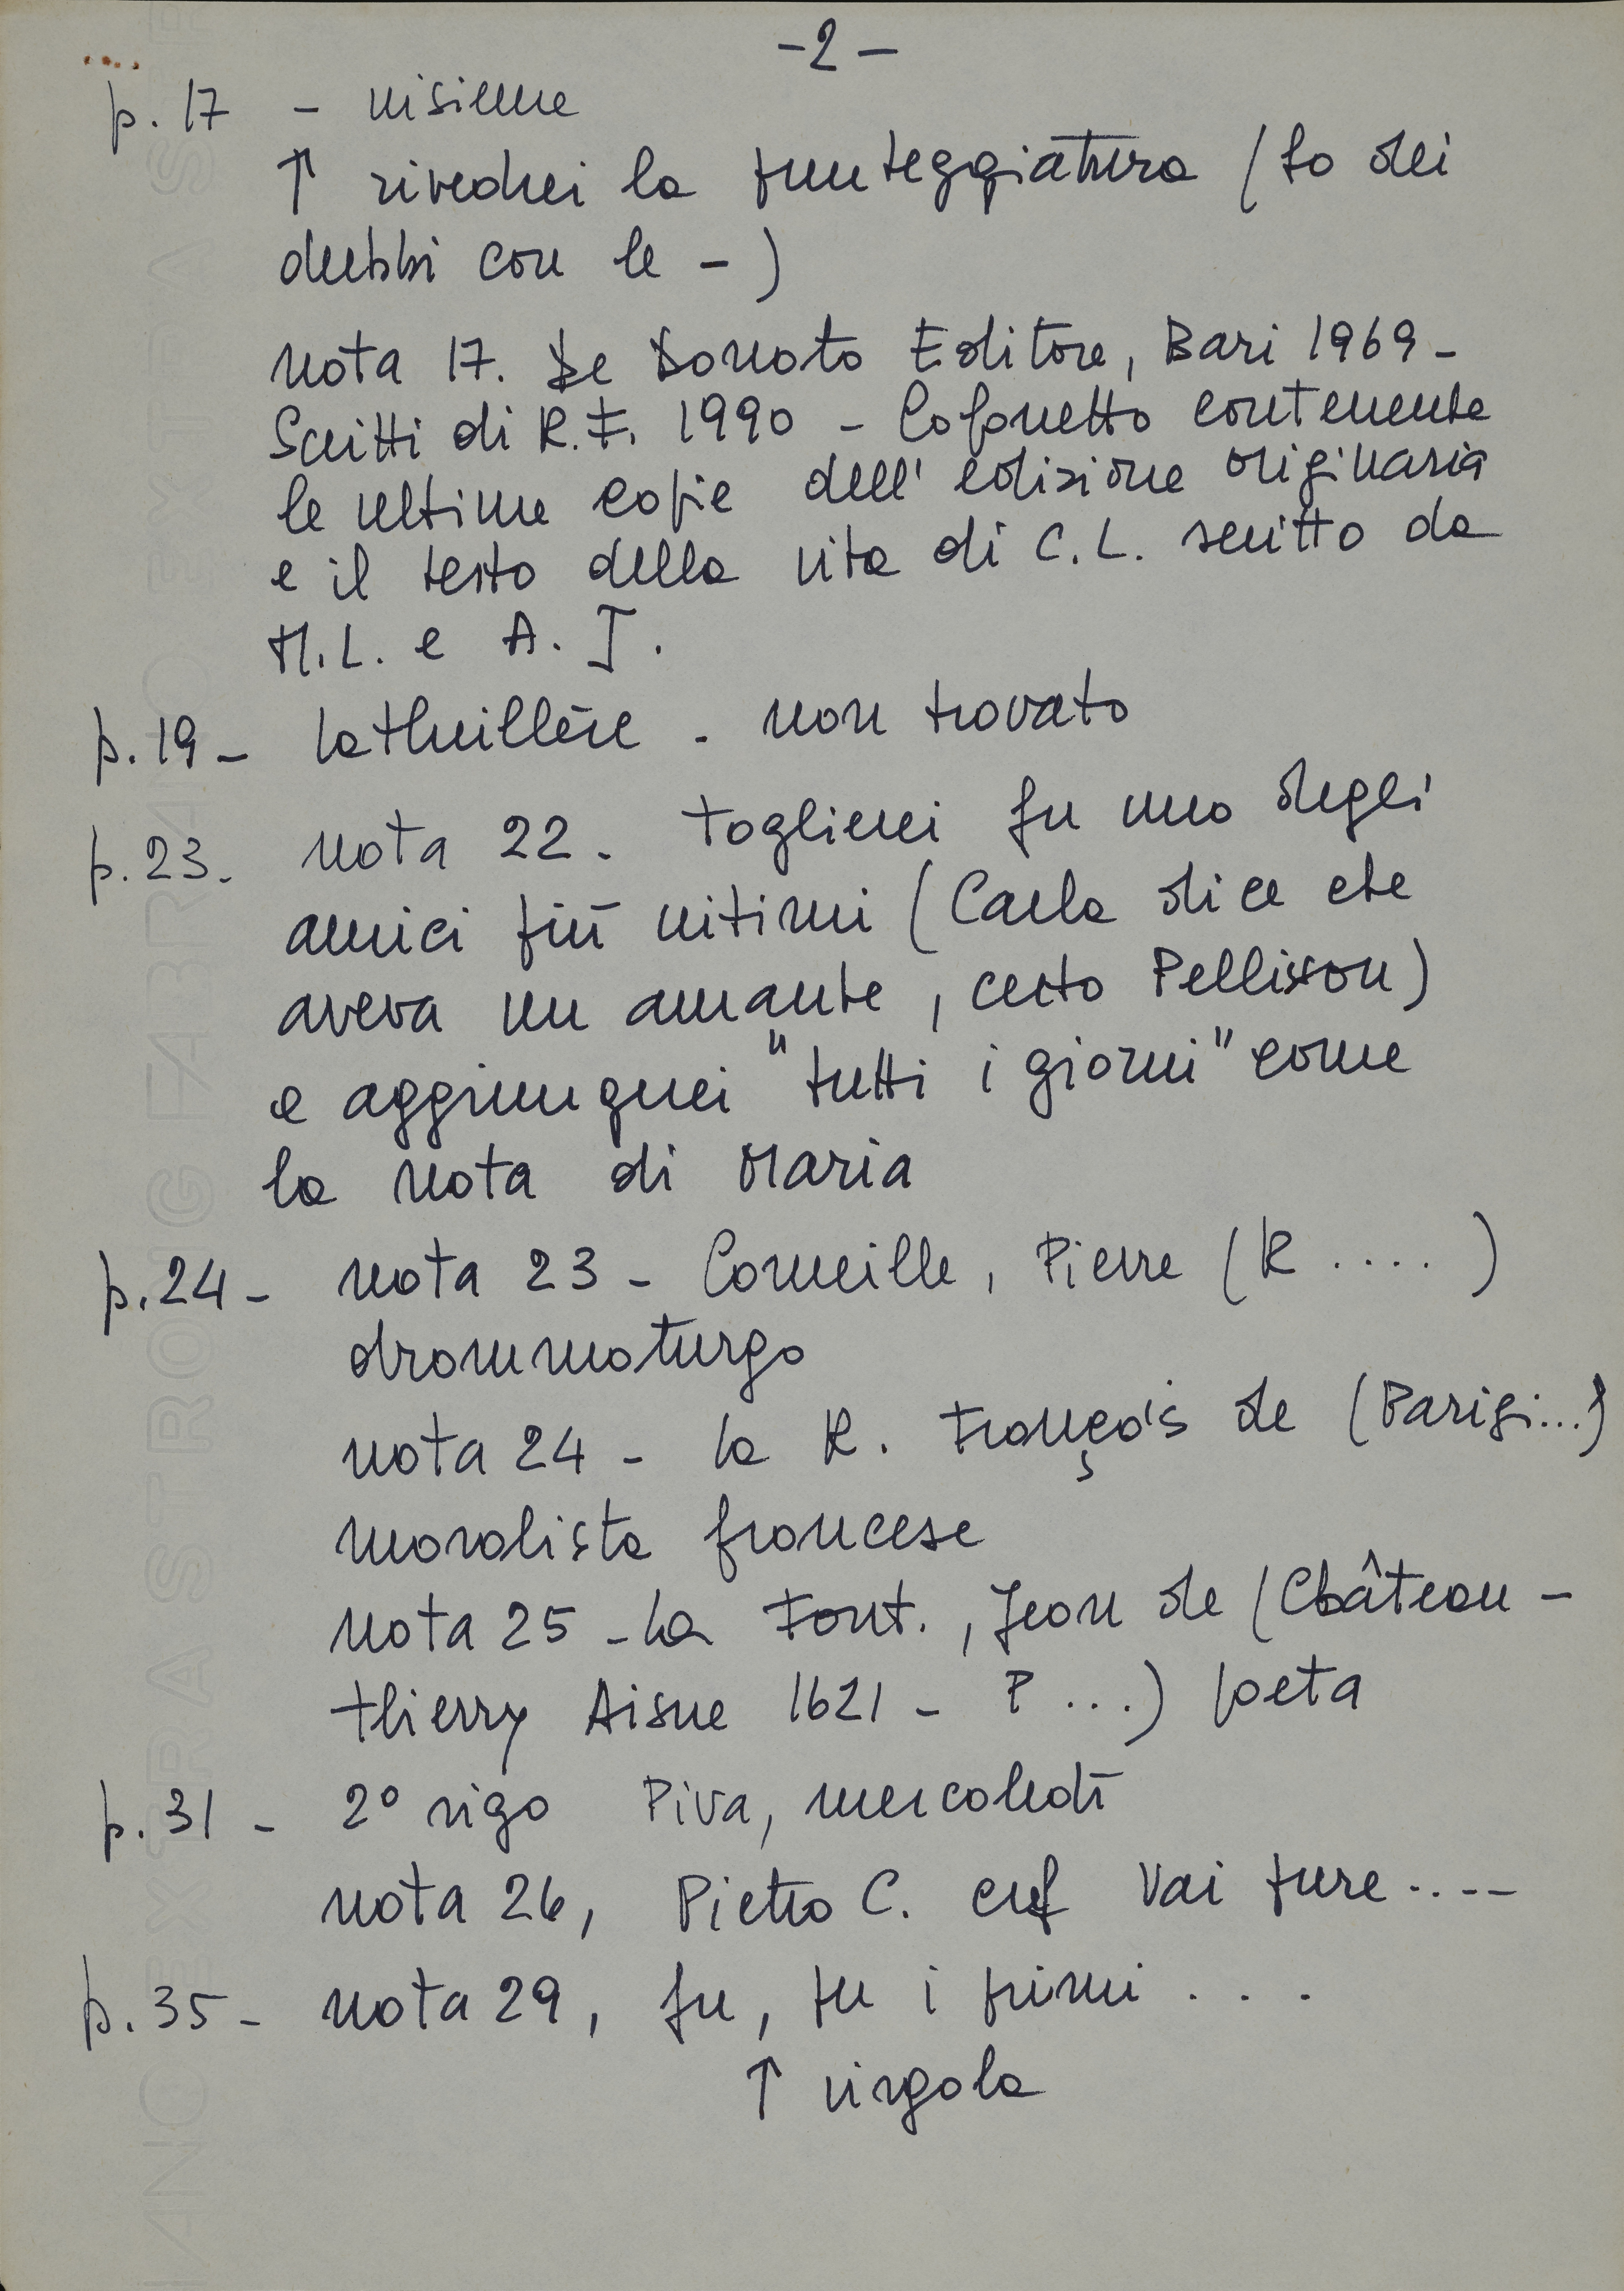 -2-
p. 17 - insieme
↑ rivedrei la punteggiatura (ho dei
dubbi con le -)
nota 17. De Donato Editore, Bari 1969 -
Scritti di R.F. 1990 - Cofanetto contenente
le ultime copie dell'edizione originaria
e il testo della vita di C.L. scritto da
M.L. e A. J.
p. 19 - Lathuillère - non trovato
p. 23 - nota 22 - toglierei fu uno degli
amici più intimi (Carla dice che
aveva un amante, certo Pellisson)
e aggiungerei "tutti i giorni" come
la nota di Maria
p. 24 - nota 23 - Corneille, Pierre (R....)
drammaturgo
nota 24 - la R. François de (Parigi...)
moralista francese
nota 25 - La Font., Jean de (Château-
thierry Aisne 1621 - P...) poeta
p. 31 - 2° rigo Piva, mercoledì
nota 26, Pietro C. Vai pure....
p. 35 - nota 29, fu, tu i primi ...
↑ virgola
FABRIANO EXTRA STRONG